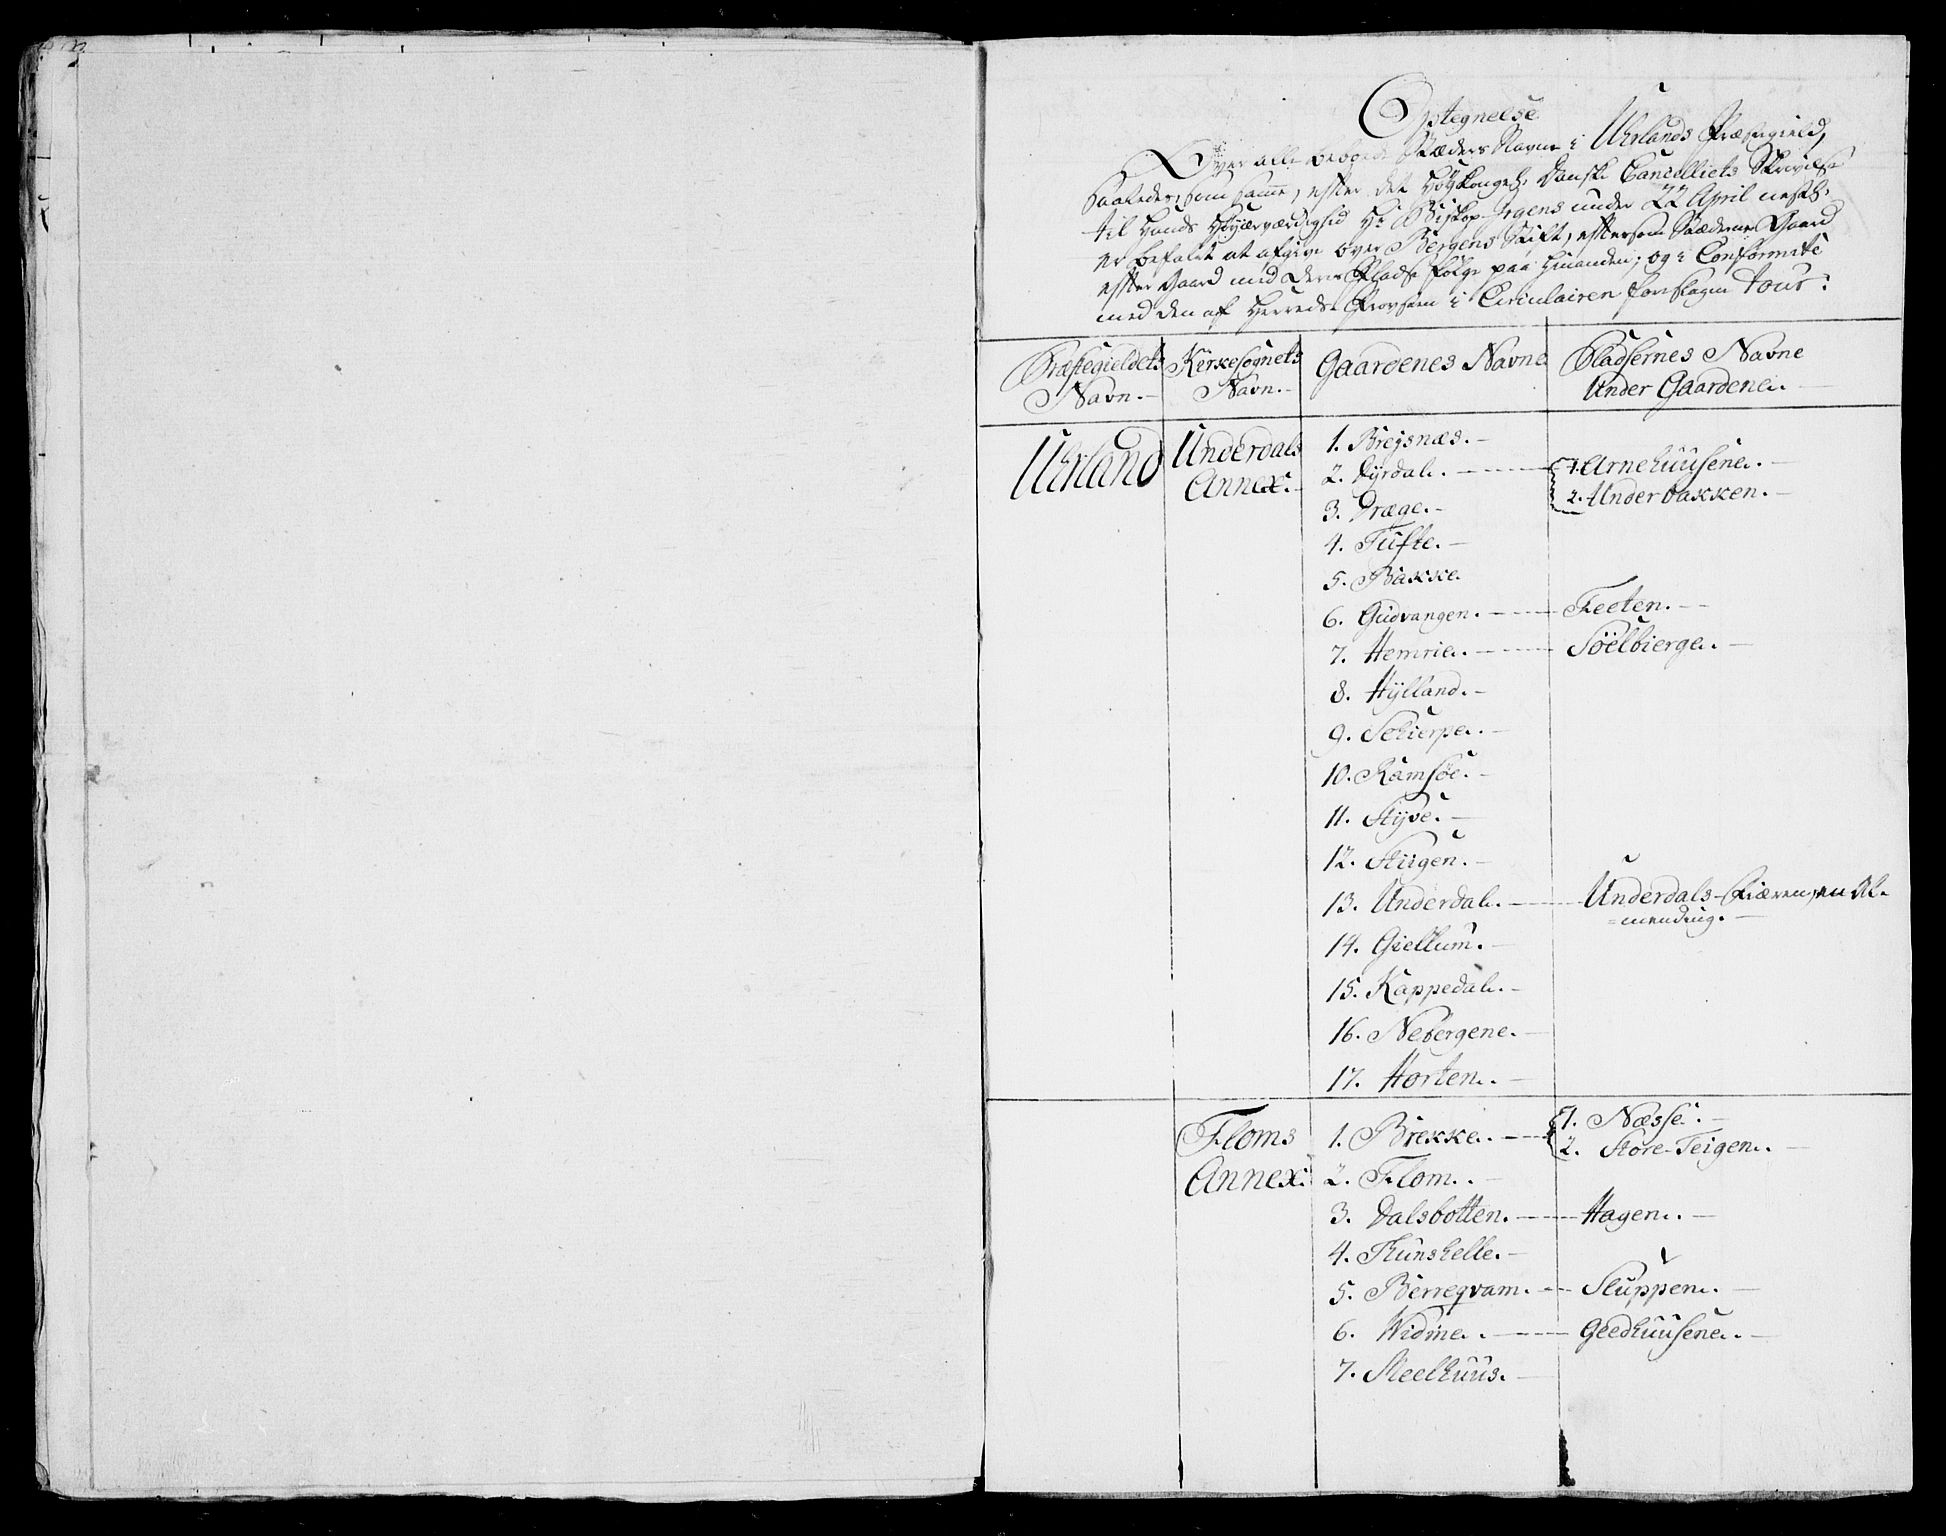 Optegnelse
Over alle beboede Stæders Navne i Uhrlands Præstegield,
saaledes, som samme, efter det Høykongel. Danske Cancelliets Skrivelse
til Hands Høyærværdighed Hr Biskop Irgens under 22 April nestl.
er befalet at afgive over Bergens Stift, eftersom Stæderne Gaard
efter Gaard med deres Pladse følge paa hinanden, og i Conformité
med den af Herreds-Provsten i Circulairen foreslagne Tour:
Præstegieldets Navn.
Kirkesognets Navn.
Gaardenes Navne
Pladsernes Navne Under Gaardene.
Uhrland
Underdals Annex.
1. Brejsnæs.
2. Dyrdal. 1. Arnehuusene.
2. Underbakken.
3. Dræge.
4. Tufte.
5. Bakke
6. Gudvangen. Feeten.
7. Hemrie. Söelbierge.
8. Hÿlland.
9. Schierpe.
10. Ramsöe.
11. Styve.
12. Stiigen.
13. Underdal. Underdals-Fiæren, en Al-
mending.
14. Giellum.
15. Kappedal.
16. Nebergene.
17. Horten.
Floms Annex.
1. Brekke. 1. Næsse.
2. Store-Teigen.
2. Flom.
3. Dalsbotten. Hagen.
4. Thunshelle.
5. Berreqvam. Sluppen.
6. Widme. Geedhuusene.
7. Steelhuus.